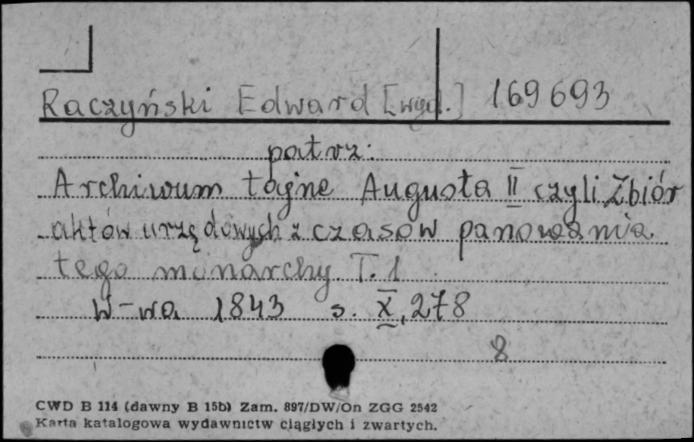 Raczyński Edward [wyd.] 169693
patrz:
Archiwum tajne Augusta II czyli Zbiór
aktów urzędowych z czasów panowania
tego monarchy T. 1
W-wa 1843 s. X, 278
8
CWD B 114 (dawny B 15b) Zam. 897/DW/On ZGG 2542
Karta katalogowa wydawnictw ciągłych i zwartych.